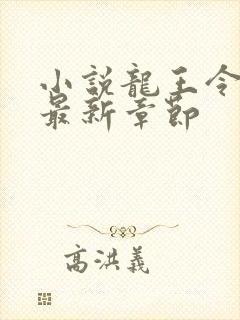 小說龍王令
最新章節
高洪義